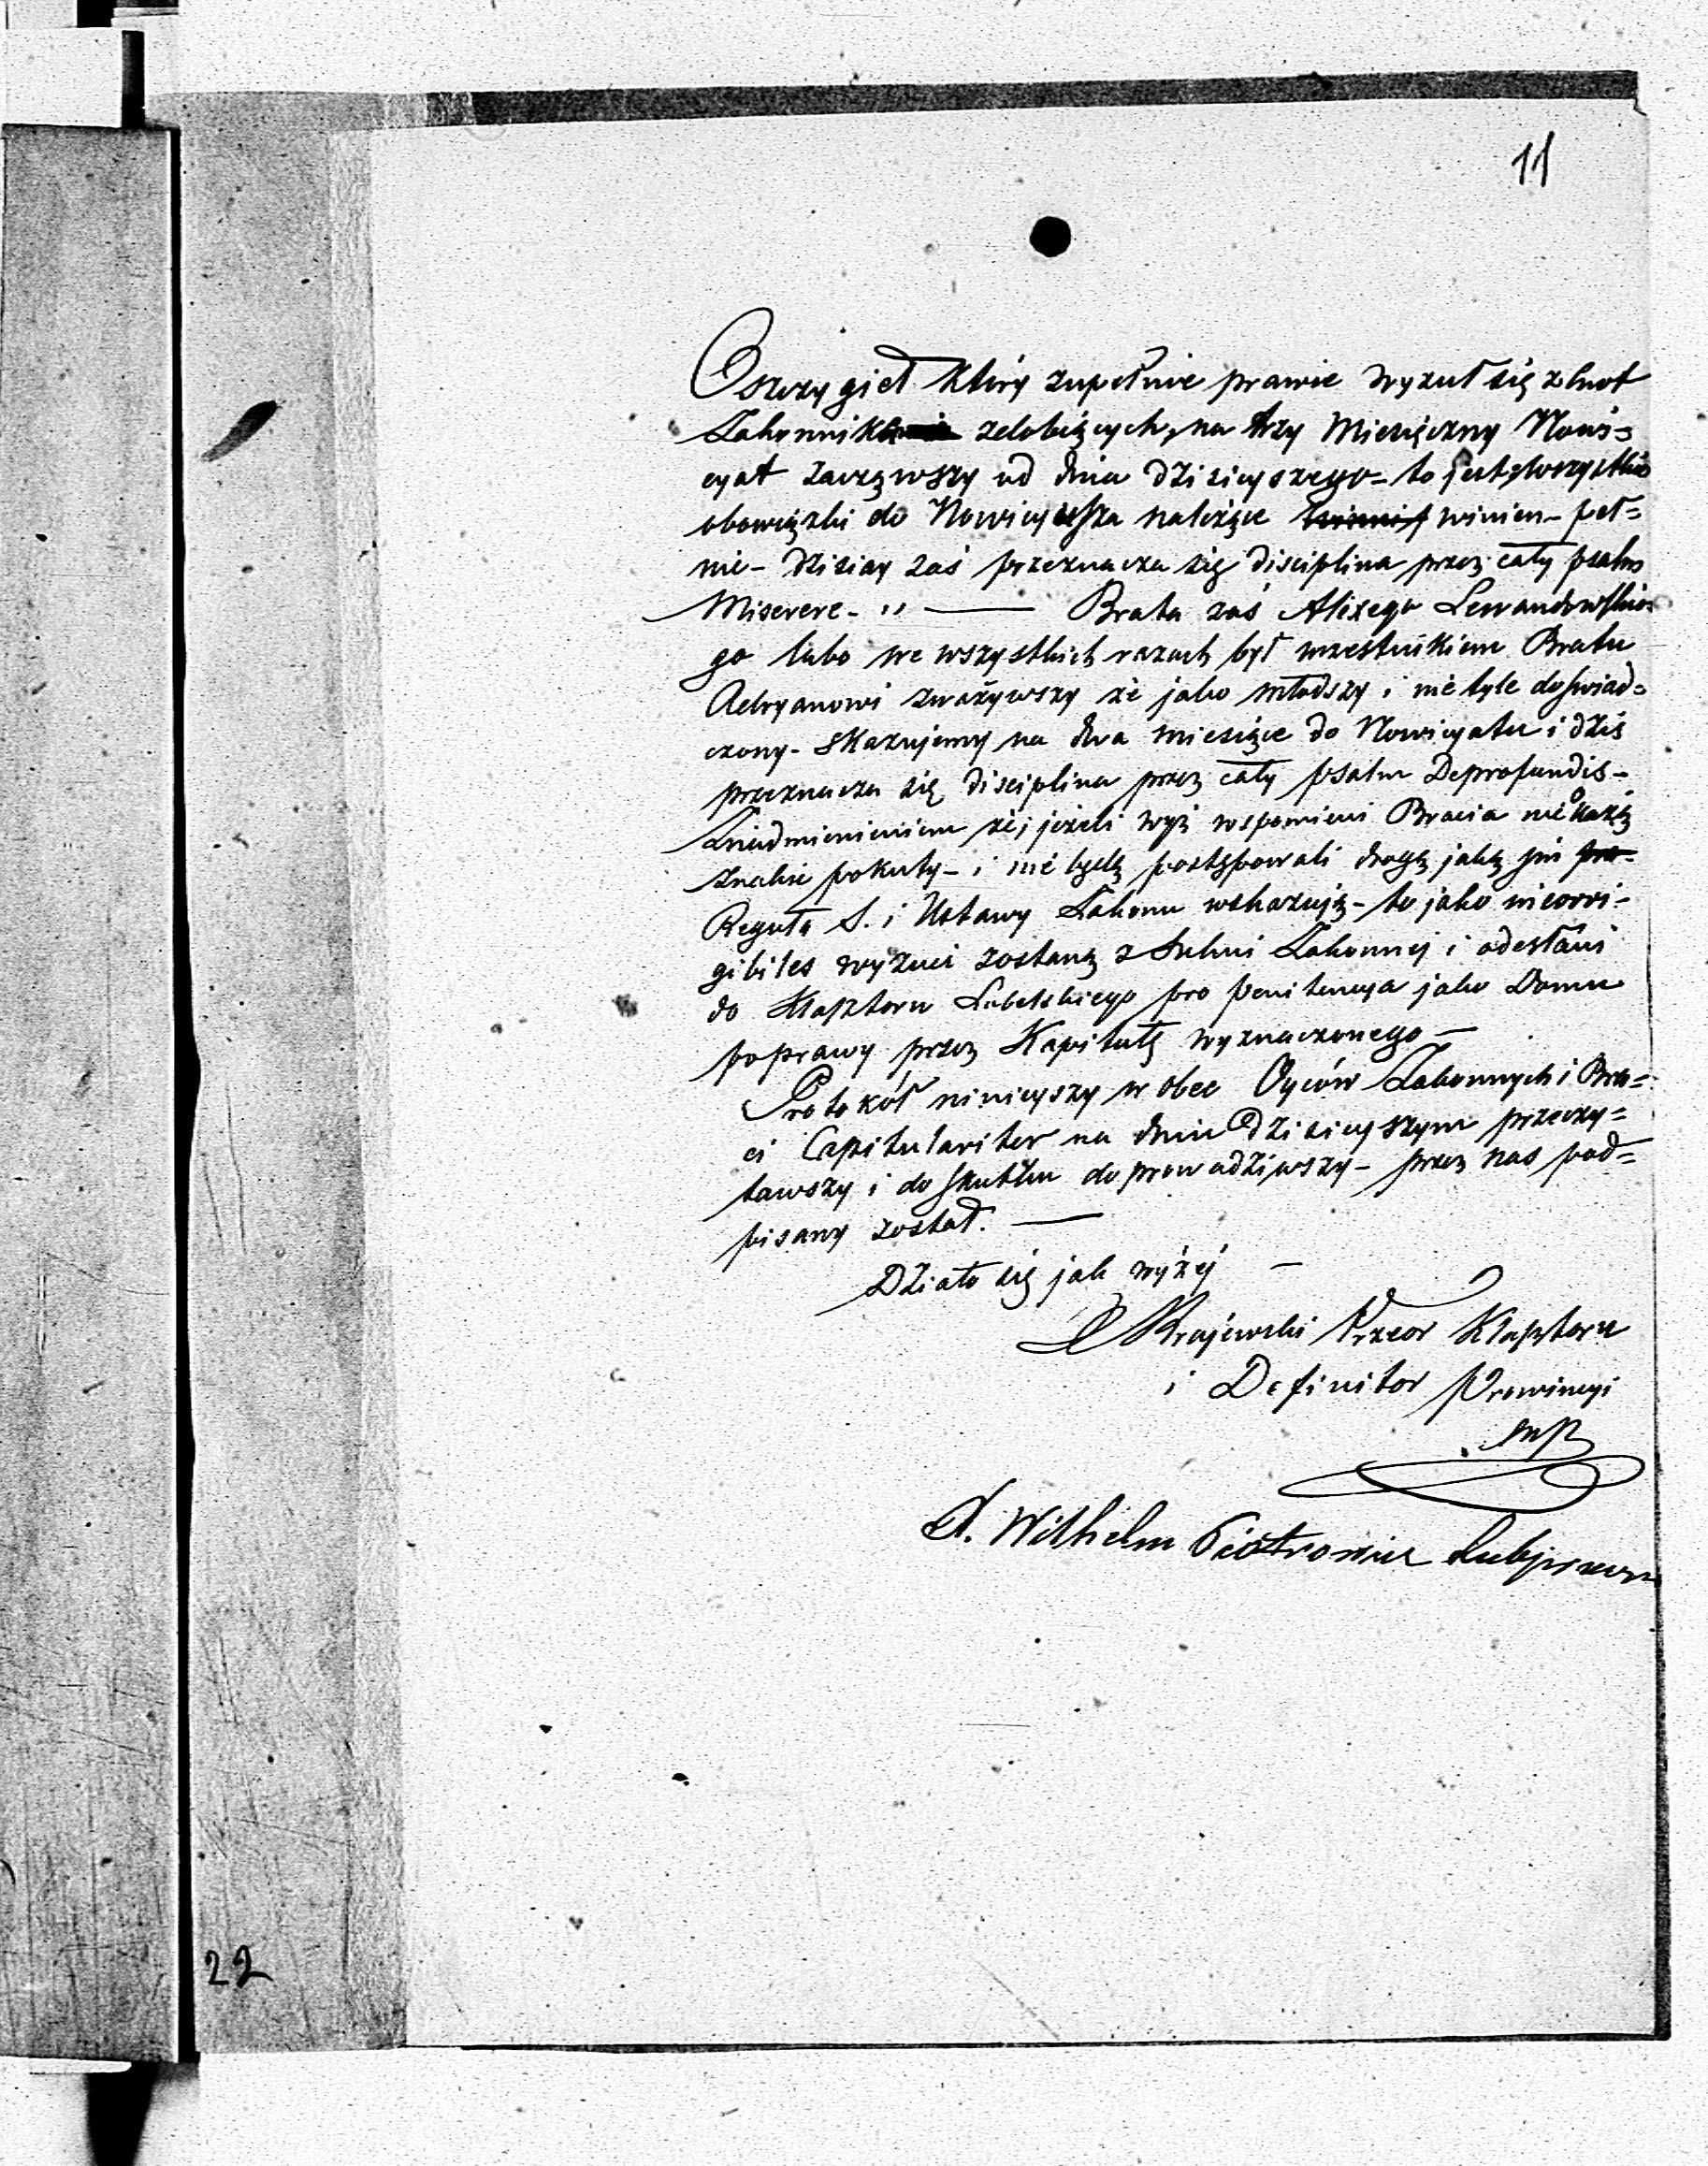 11
Oszczygieł który zupełnie prawie wyzuł się z cnot
Zakonnika zdobiących, na trzy Miesięczny Nowi=
cyat zacząwszy od dnia dzisieyszego - to jest, wszystkie
obowiązki do Nowicyusza należące winien - peł=
nić - dzisiay zaś przeznacza się disciplina przez cały psalm
Miserere - " — Brata zaś Alexego Lewandowskie=
go lubo we wszystkich razach był uczestnikiem Bratu
Adryanowi zważywszy że jako młodszy i nie tyle doświad=
czony - skazujemy na dwa miesiące do Nowicyatu i dziś
przeznacza się disciplina przez cały psalm Deprofundis -
Znadmienieniem że, jeżeli wyż wspomnieni Bracia nie okażą
znaków pokuty - i nie będą postępowali drogą jaką im
Reguła S. i Ustawy Zakonu wskazują - to jako incorri-
gibiles wyzuci zostaną z Sukni Zakonnej i odesłani
do Klasztoru Lubelskiego pro penitencya jako Domu
poprawy przez Kapitułę wyznaczonego —
Protokół ninieyszy w obec Oyców Zakonnych i Bra=
ci Capitulariter na dniu dzisieyszym przeczy=
tawszy i do skutku doprowadziwszy - przez nas pod=
pisany został. —
Działo się jak wyżej —
Krajewski Przeor Klasztoru
i Definitor Prowincyi
mp
X. Wilhelm Piotrowicz Subprzeor
22